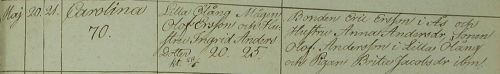 Maj 20. 21. Carolina
70.
Lilla Olång Mågen
Olof Ersson och Hu-
stru Ingrid Anders
Dotter 20. 25.
Bonden Eric Ersson i Ås och
Hustru Anna Andersdr, Sonen
Olof Andersson i Lilla Olång
och Pigan Brita Jacobsdr ibm.